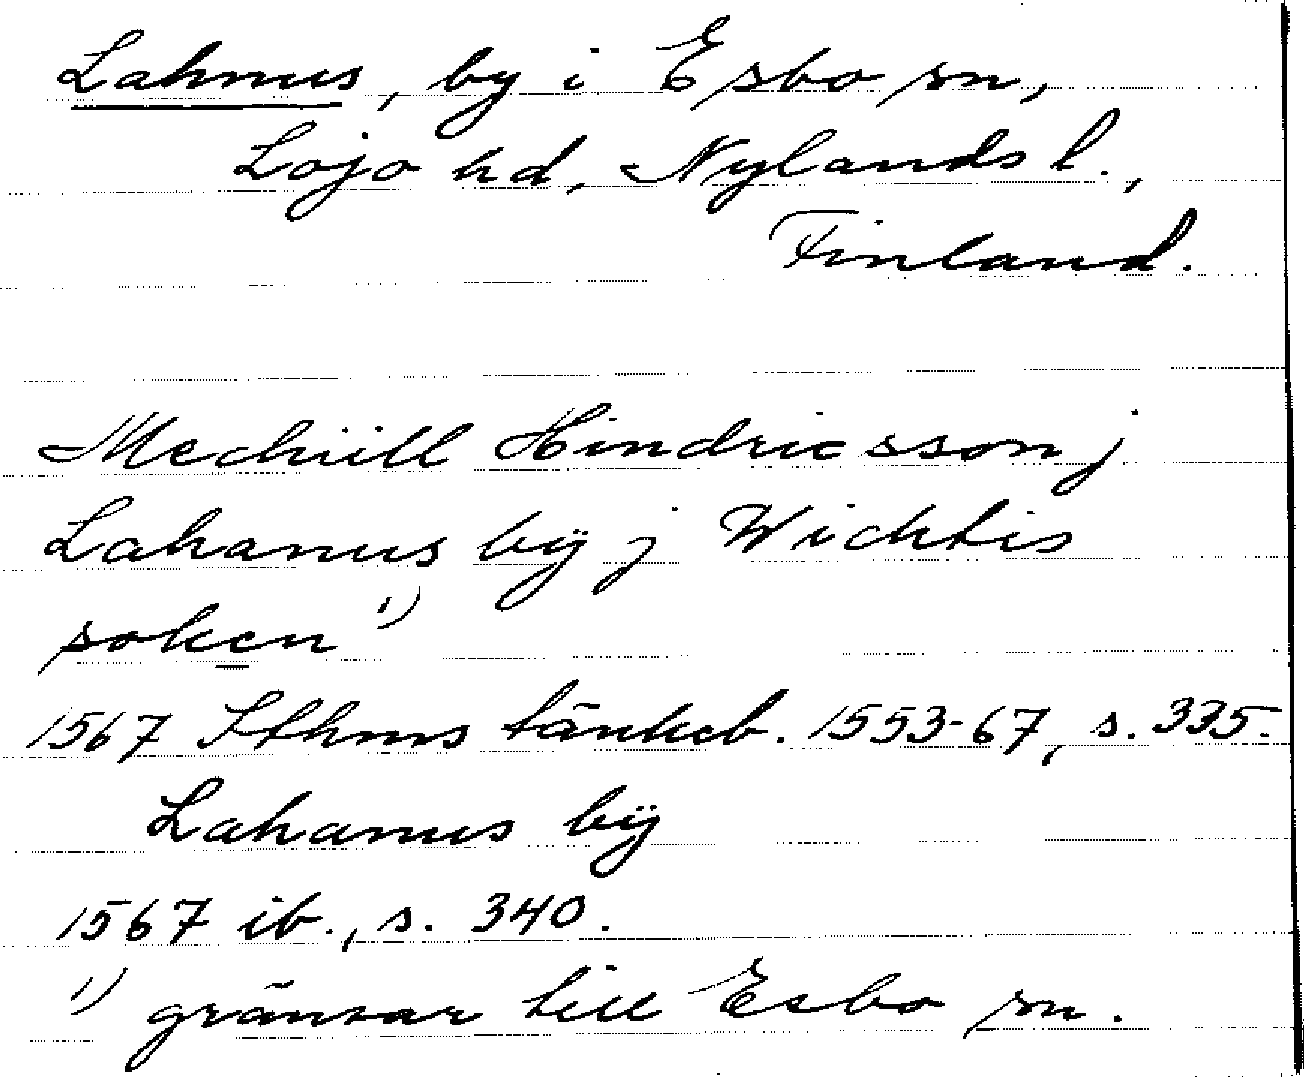 Lahnus, by i Esbo sn,
Lojo hd, Nylands l.,
Finland.
Mechiill Hindricsson j
Lahanus bÿ j Wichtis
soken 1)
1567 Sthms tänkeb. 1553-67, s. 335.
Lahanus bÿ
1567 ib., s. 340.
1) gränsar till Esbo sn.